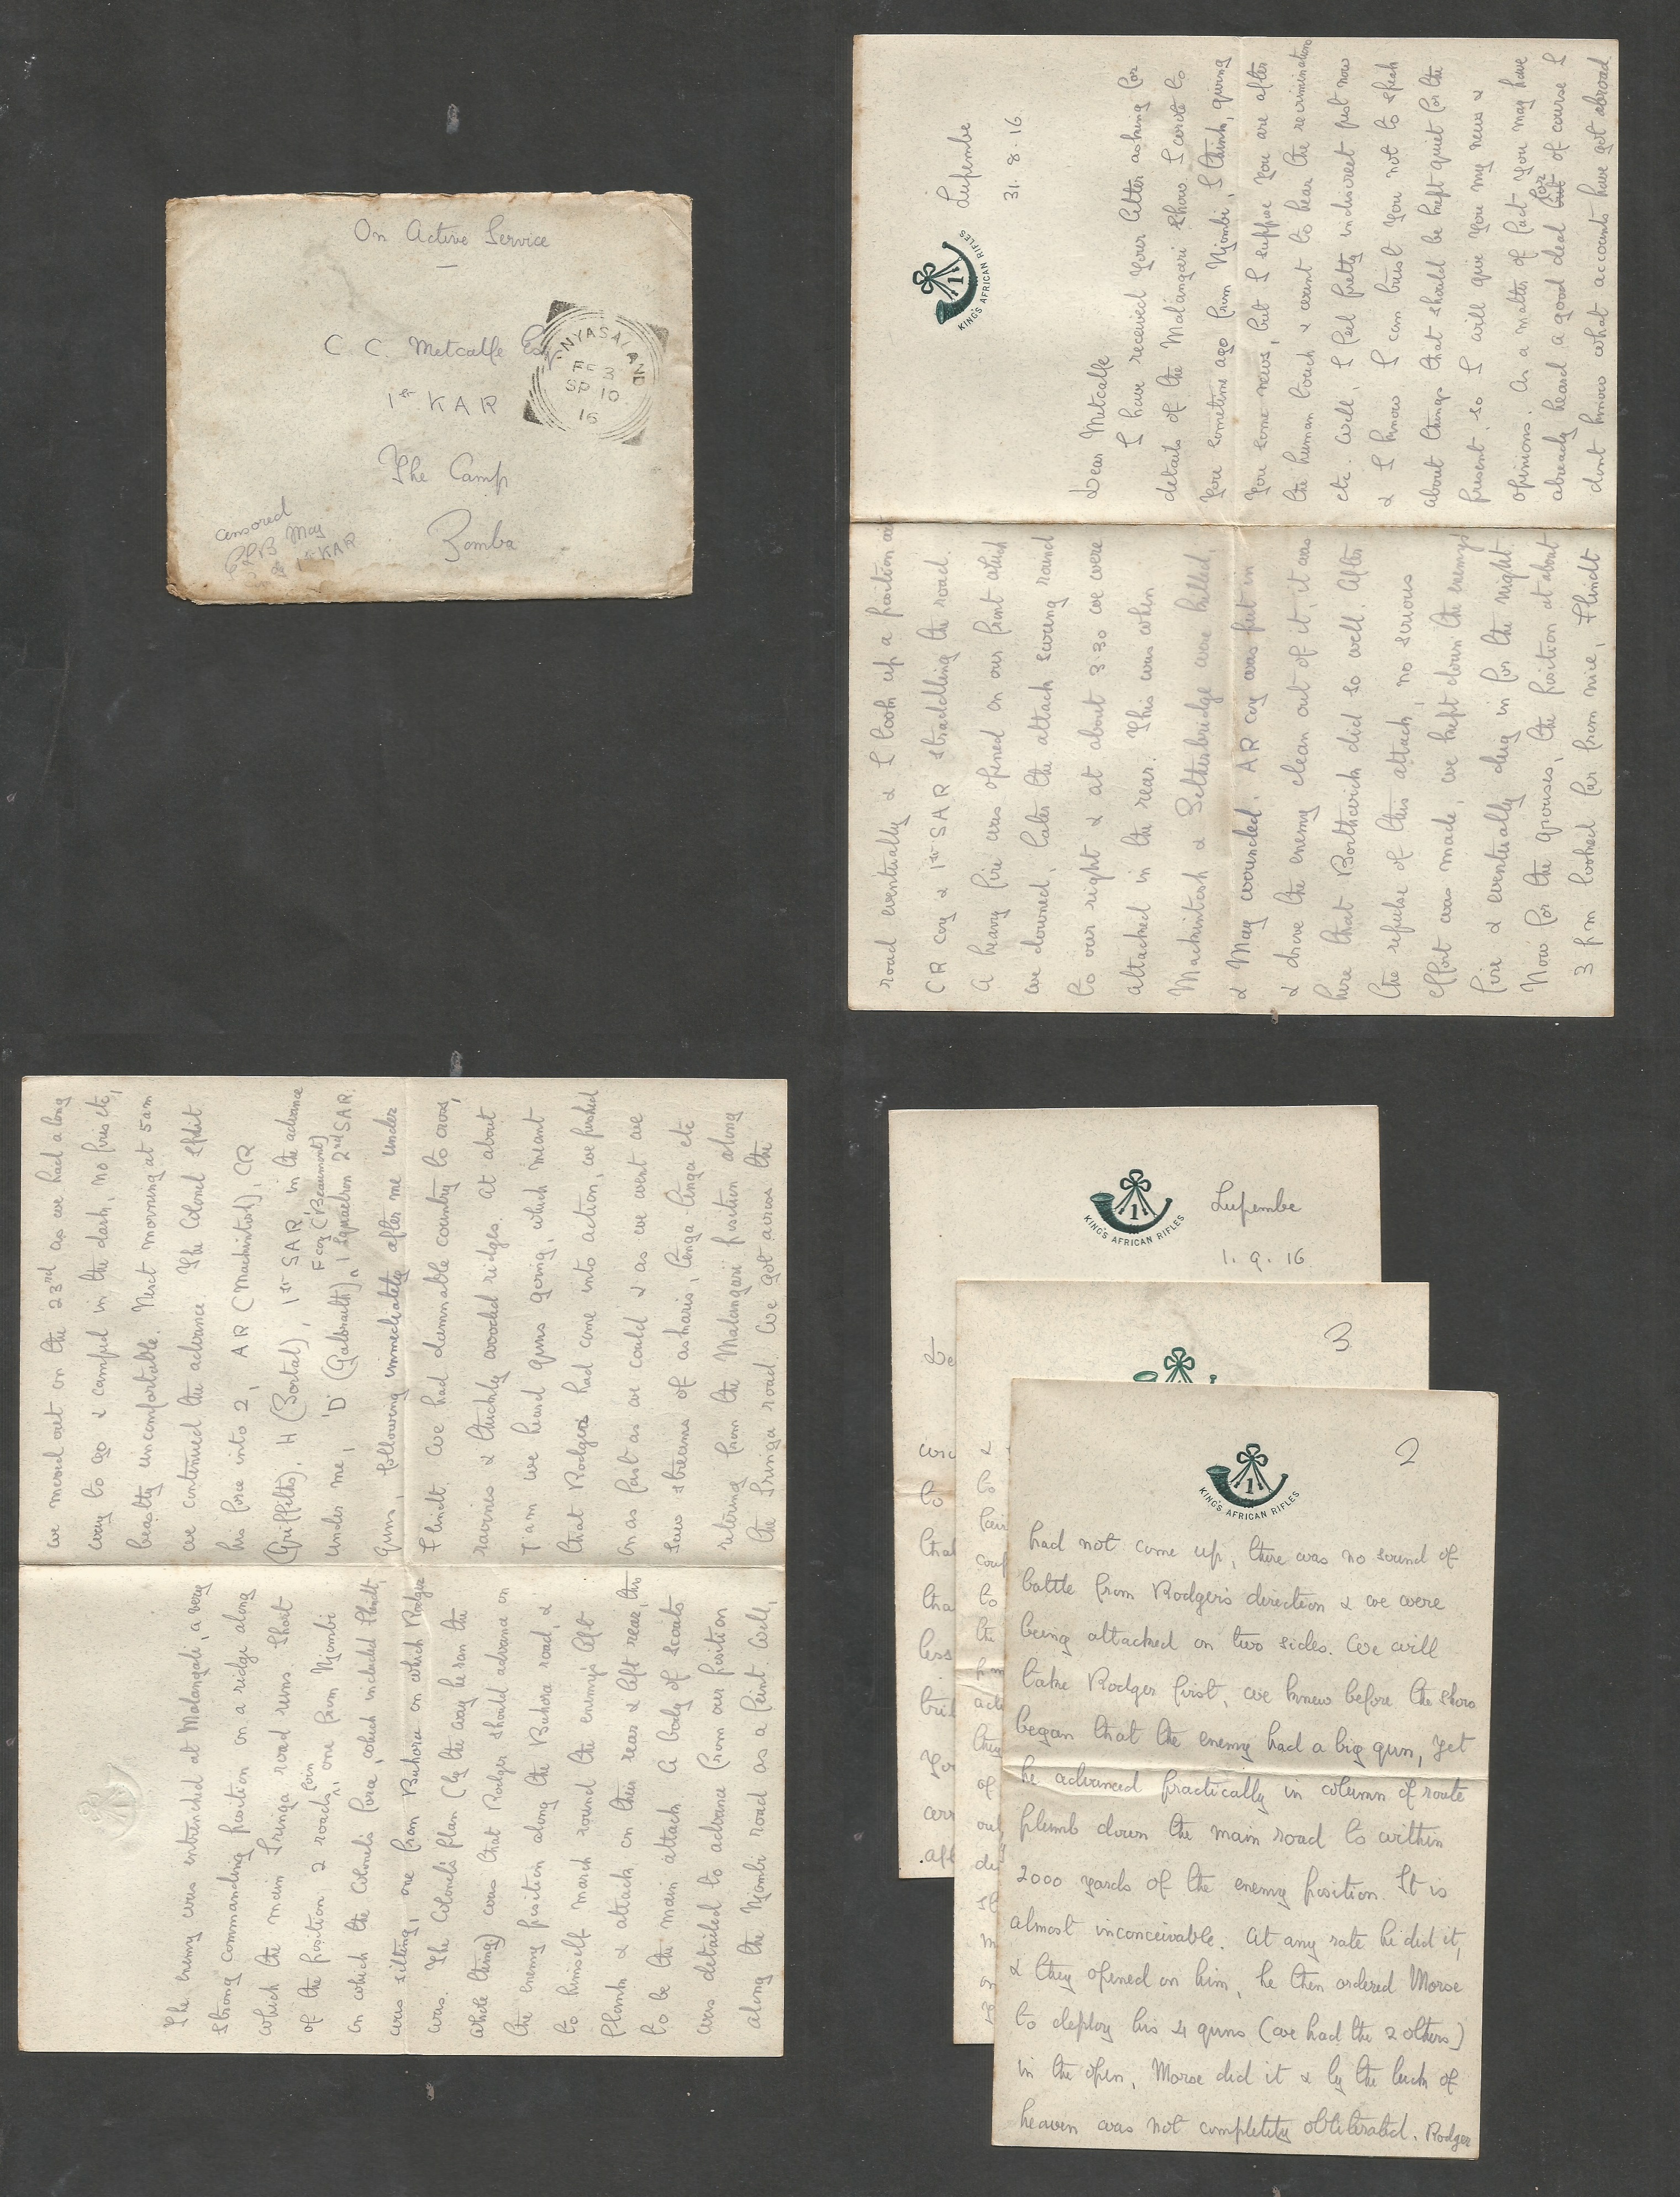 On Active Service
C. C. Metcalfe Esq
1st KAR
The Camp
Zomba
censored
May
1st KAR
NYASALAND
SP 10
16
1
KING'S AFRICAN RIFLES
Lupembe
31. 8. 16
Dear Metcalfe
I have received your letter asking for
details of the Malangari show. I wrote to
you sometime ago from Njombi, I think, giving
you some news, but I suppose you are after
the human touch & want to hear the recriminations
etc. Well, I feel pretty indiscreet just now
& I know I can trust you not to speak
about things that should be kept quiet for the
present, so I will give you my news &
opinions. As a matter of fact you may have
already heard a good deal but for of course I
dont know what accounts have got abroad.
The enemy was entrenched at Malangali, a very
strong commanding position on a ridge along
which the main Iringa road runs. Short
of the position 2 roads join, one from Njombi
on which the Colonels force, which included Flindt,
was sitting, one from Buhora on which Rodger
was. The Colonels plan (by the way he ran the
whole thing) was that Rodger should advance on
the enemy position along the Buhora road, &
to himself march round the enemys left
flank & attack on their rear & left rear, this
to be the main attack. A body of scouts
was detailed to advance from our position
along the Njombi road as a feint. Well,
we moved out on the 23rd as we had a long
way to go & camped in the dark, no fires etc,
beastly uncomfortable. Next morning at 5am
we continued the advance. The Colonel split
his force into 2, AR (Mackintosh), CR
(Griffiths), H (Bostal), 1st SAR in the advance
under me, 'D' (Galbraith), F coy (Beaumont) 1 squadron 2nd SAR.
guns, following immediately after me under
Flindt. We had damnable country to cross,
ravines & thickly wooded ridges. At about
7 am we heard guns going, which meant
that Rodger had come into action, we pushed
on as fast as we could & as we went we
saw streams of askaris, tenga-tenga etc
retiring from the Malangari position along
the Iringa road. We got across the
road eventually & I took up a position
CR coy & 1st SAR straddling the road.
A heavy fire was opened on our front which
we downed, later the attack swung round
to our right & at about 3.30 we were
attacked in the rear. This was when
Mackintosh & Bethersbridge were killed,
& May wounded. AR coy was put in
& drove the enemy clean out of it, it was
here that Borthwick did so well. After
the repulse of this attack, no serious
effort was made, we kept down the enemys
fire & eventually dug in for the night.
Now for the grouses, the position at about
3 pm looked far from nice, Flindt
1
KING'S AFRICAN RIFLES
Lupembe
1. 9. 16
3
2
1
KING'S AFRICAN RIFLES
had not come up, there was no sound of
battle from Rodger's direction & we were
being attacked on two sides. We will
take Rodger first, we knew before the show
began that the enemy had a big gun, yet
he advanced practically in column of route
plumb down the main road to within
2000 yards of the enemy position. It is
almost inconceivable. At any rate he did it,
& they opened on him, he then ordered Morse
to deploy his 4 guns (we had the 2 others)
in the open, Morse did it & by the luck of
heaven was not completely obliterated. Rodger